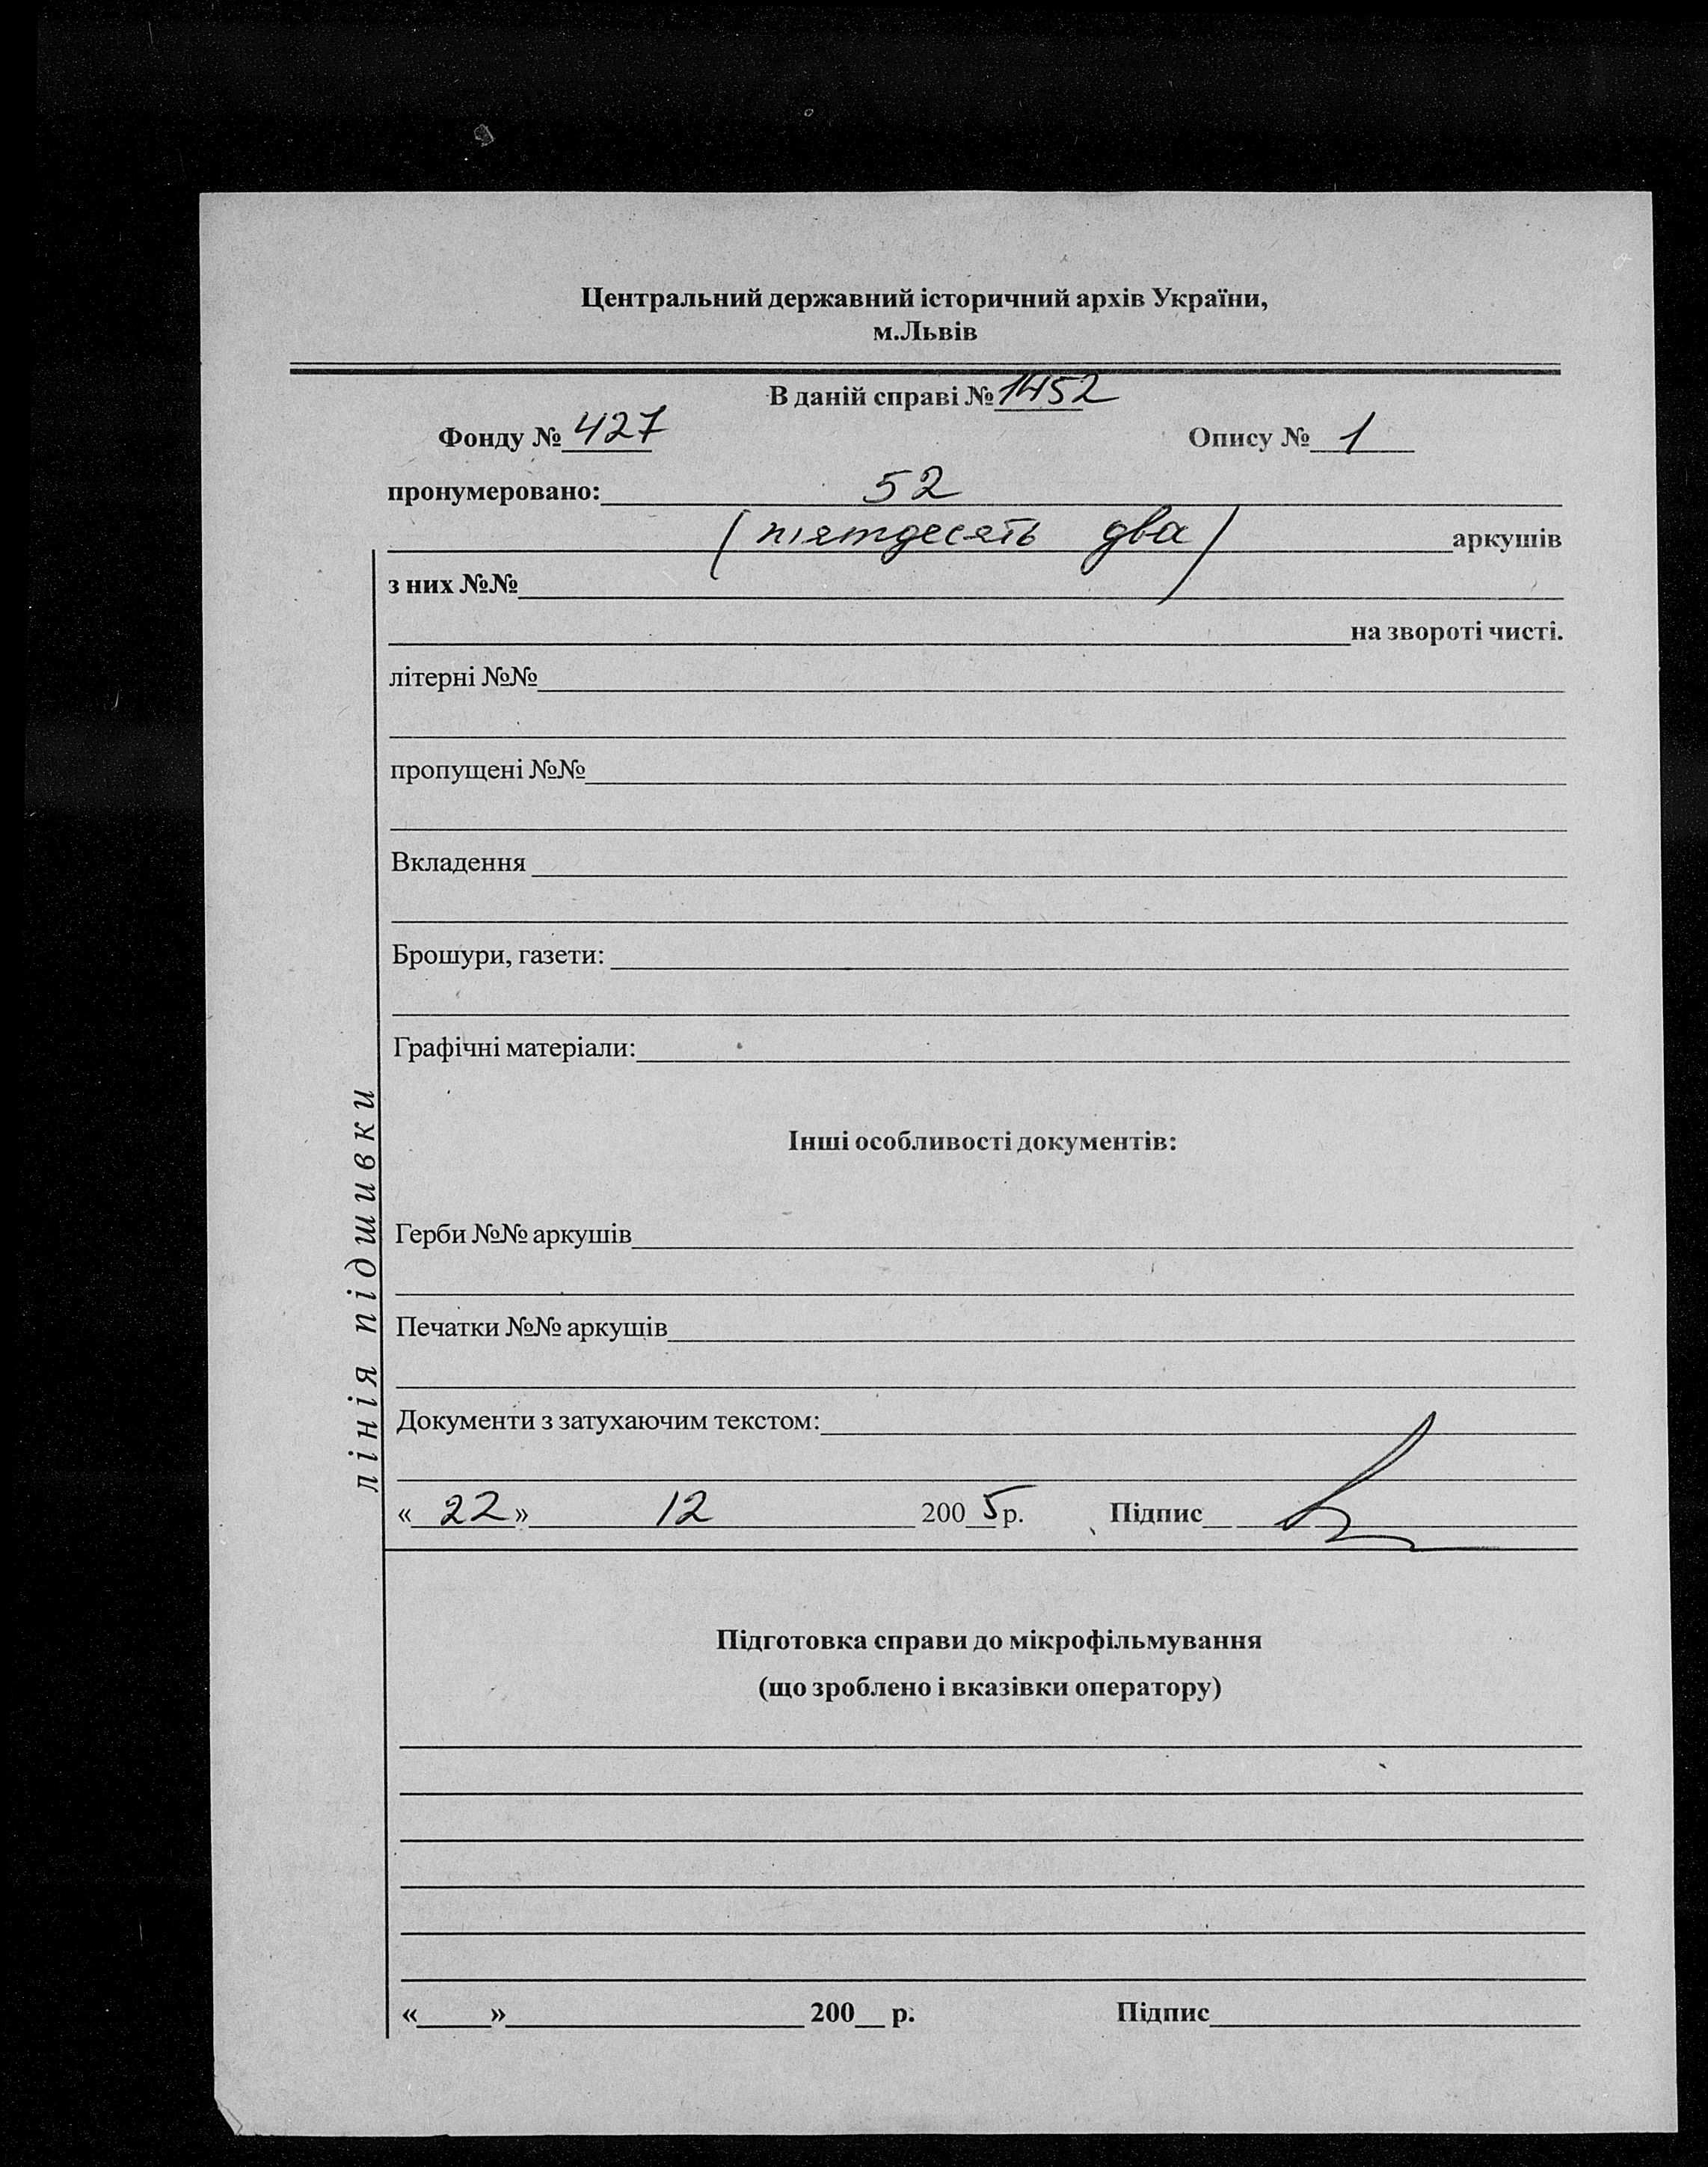 Центральний державний історичний архів України,
м.Львів
В даній справі № 1452
Фонду № 427 Опису № 1
пронумеровано: 52
(пятдесять два) аркушів
з них №№
на звороті чисті.
літерні №№
пропущені №№
Вкладення
Брошури, газети:
Графічні матеріали:
Інші особливості документів:
Герби №№ аркушів
Печатки №№ аркушів
Документи з затухаючим текстом:
« 22 » 12 200 5 р. Підпис
лінія підшивки
Підготовка справи до мікрофільмування
(що зроблено і вказівки оператору)
«____»____ 200__ р. Підпис